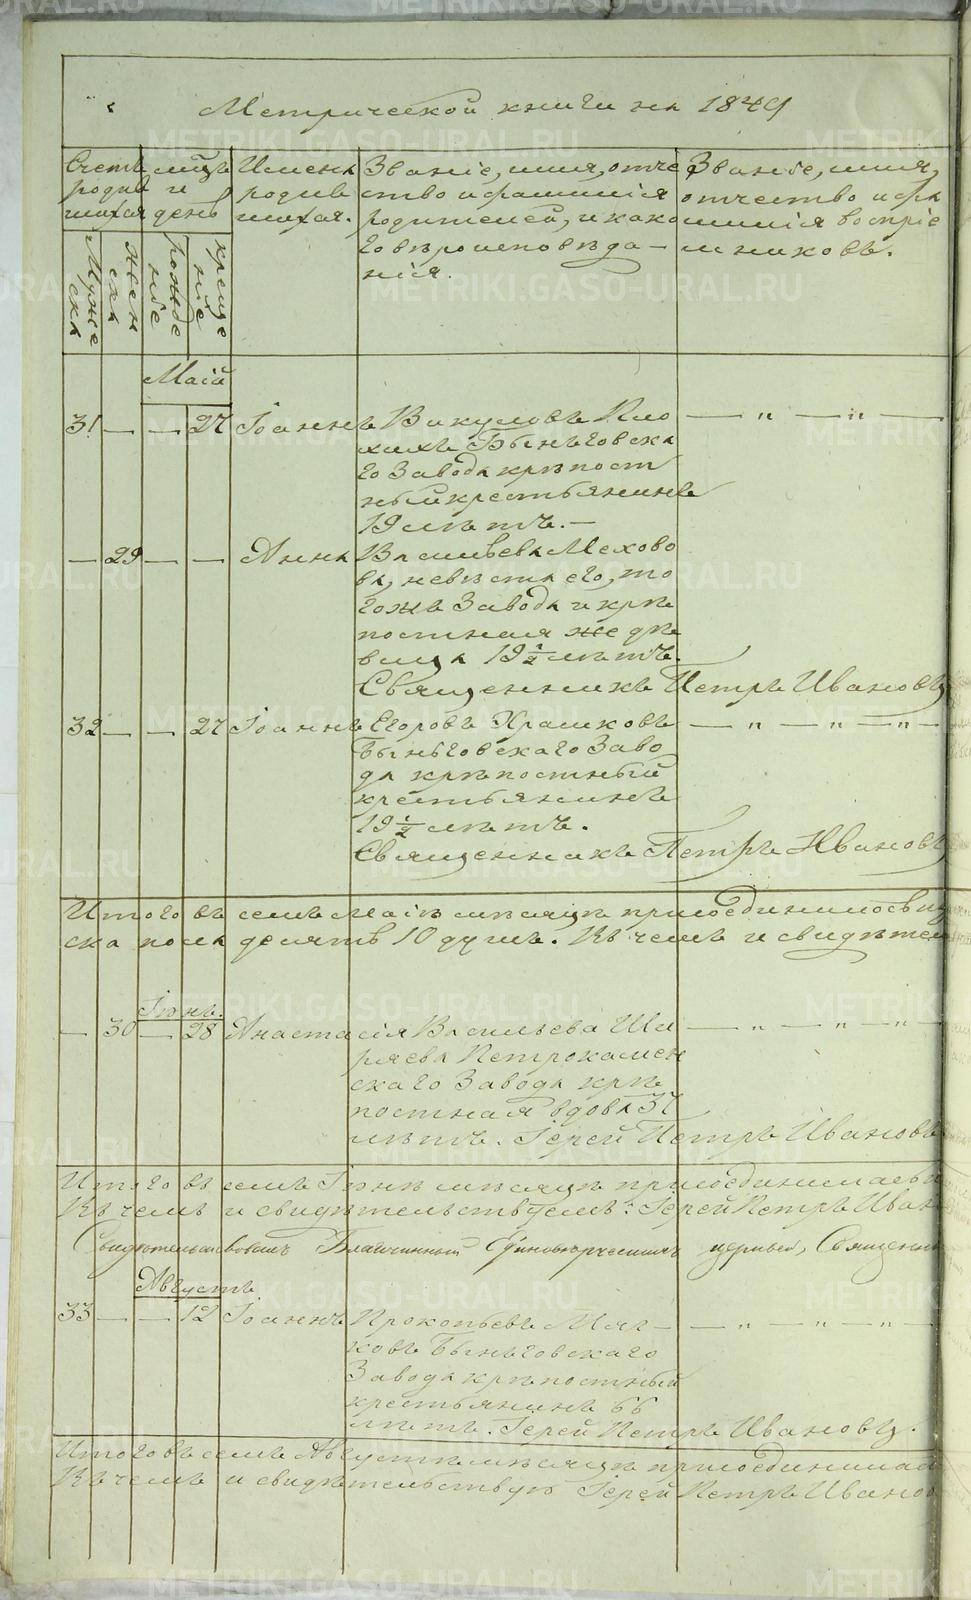 Метрической книги на 1849
Счетъ родив шихся
Мужеска
Женска
мѣсяцъ и день
рожденіе
крещеніе
Имена
родив
шихся.
Званіе, имя, отче
ство и фамилія
родителей, и како
го вѣроисповѣда-
нія.
Званіе, имя,
отчество и фа
милія воспріе
мниковъ.
Маій
31 — — 27 Іоаннъ Викуловъ Пло
хихъ Быньговска
го Завода крѣпост
ный крестьянинъ
19 лѣтъ. —
— 29 — — Анна Васильева Мехово
ва, невѣста его, то
гожъ Завода и крѣ
постная же дѣ
вица 19 ½ лѣтъ.
Священникъ Петръ Ивановъ
32 — — 27 Іоаннъ Егоровъ Храмковъ
Быньговскаго Заво
да крѣпостный
крестьянинъ
19 ½ лѣтъ.
Священникъ Петръ Ивановъ
Итого въ семъ Маіѣ мѣсяцѣ присоединилось
ска пола десять 10 душъ. Въ чемъ и свидѣтел
Іюнь.
— 30 — 28 Анастасія Васильева Ши
ряева Петрокамен
скаго Завода крѣ
постная вдова 37
лѣтъ. Іерей Петръ Ивановъ
Итого въ семъ Іюнѣ мѣсяцѣ присоединилась
Въ чемъ и свидѣтельствуемъ: Іерей Петръ Иван
Свидѣтельствовалъ Благочинный Единовѣрческихъ церквей, Священн
Августъ.
33 — — 12 Іоаннъ Прокопьевъ Мял-
ковъ Быньговскаго
Завода крѣпостный
крестьянинъ 66
лѣтъ. Іерей Петръ Ивановъ.
Итого въ семъ Августѣ мѣсяцѣ присоединился
Въ чемъ и свидѣтельствую Іерей Петръ Иванов
METRIKI.GASO-URAL.RU